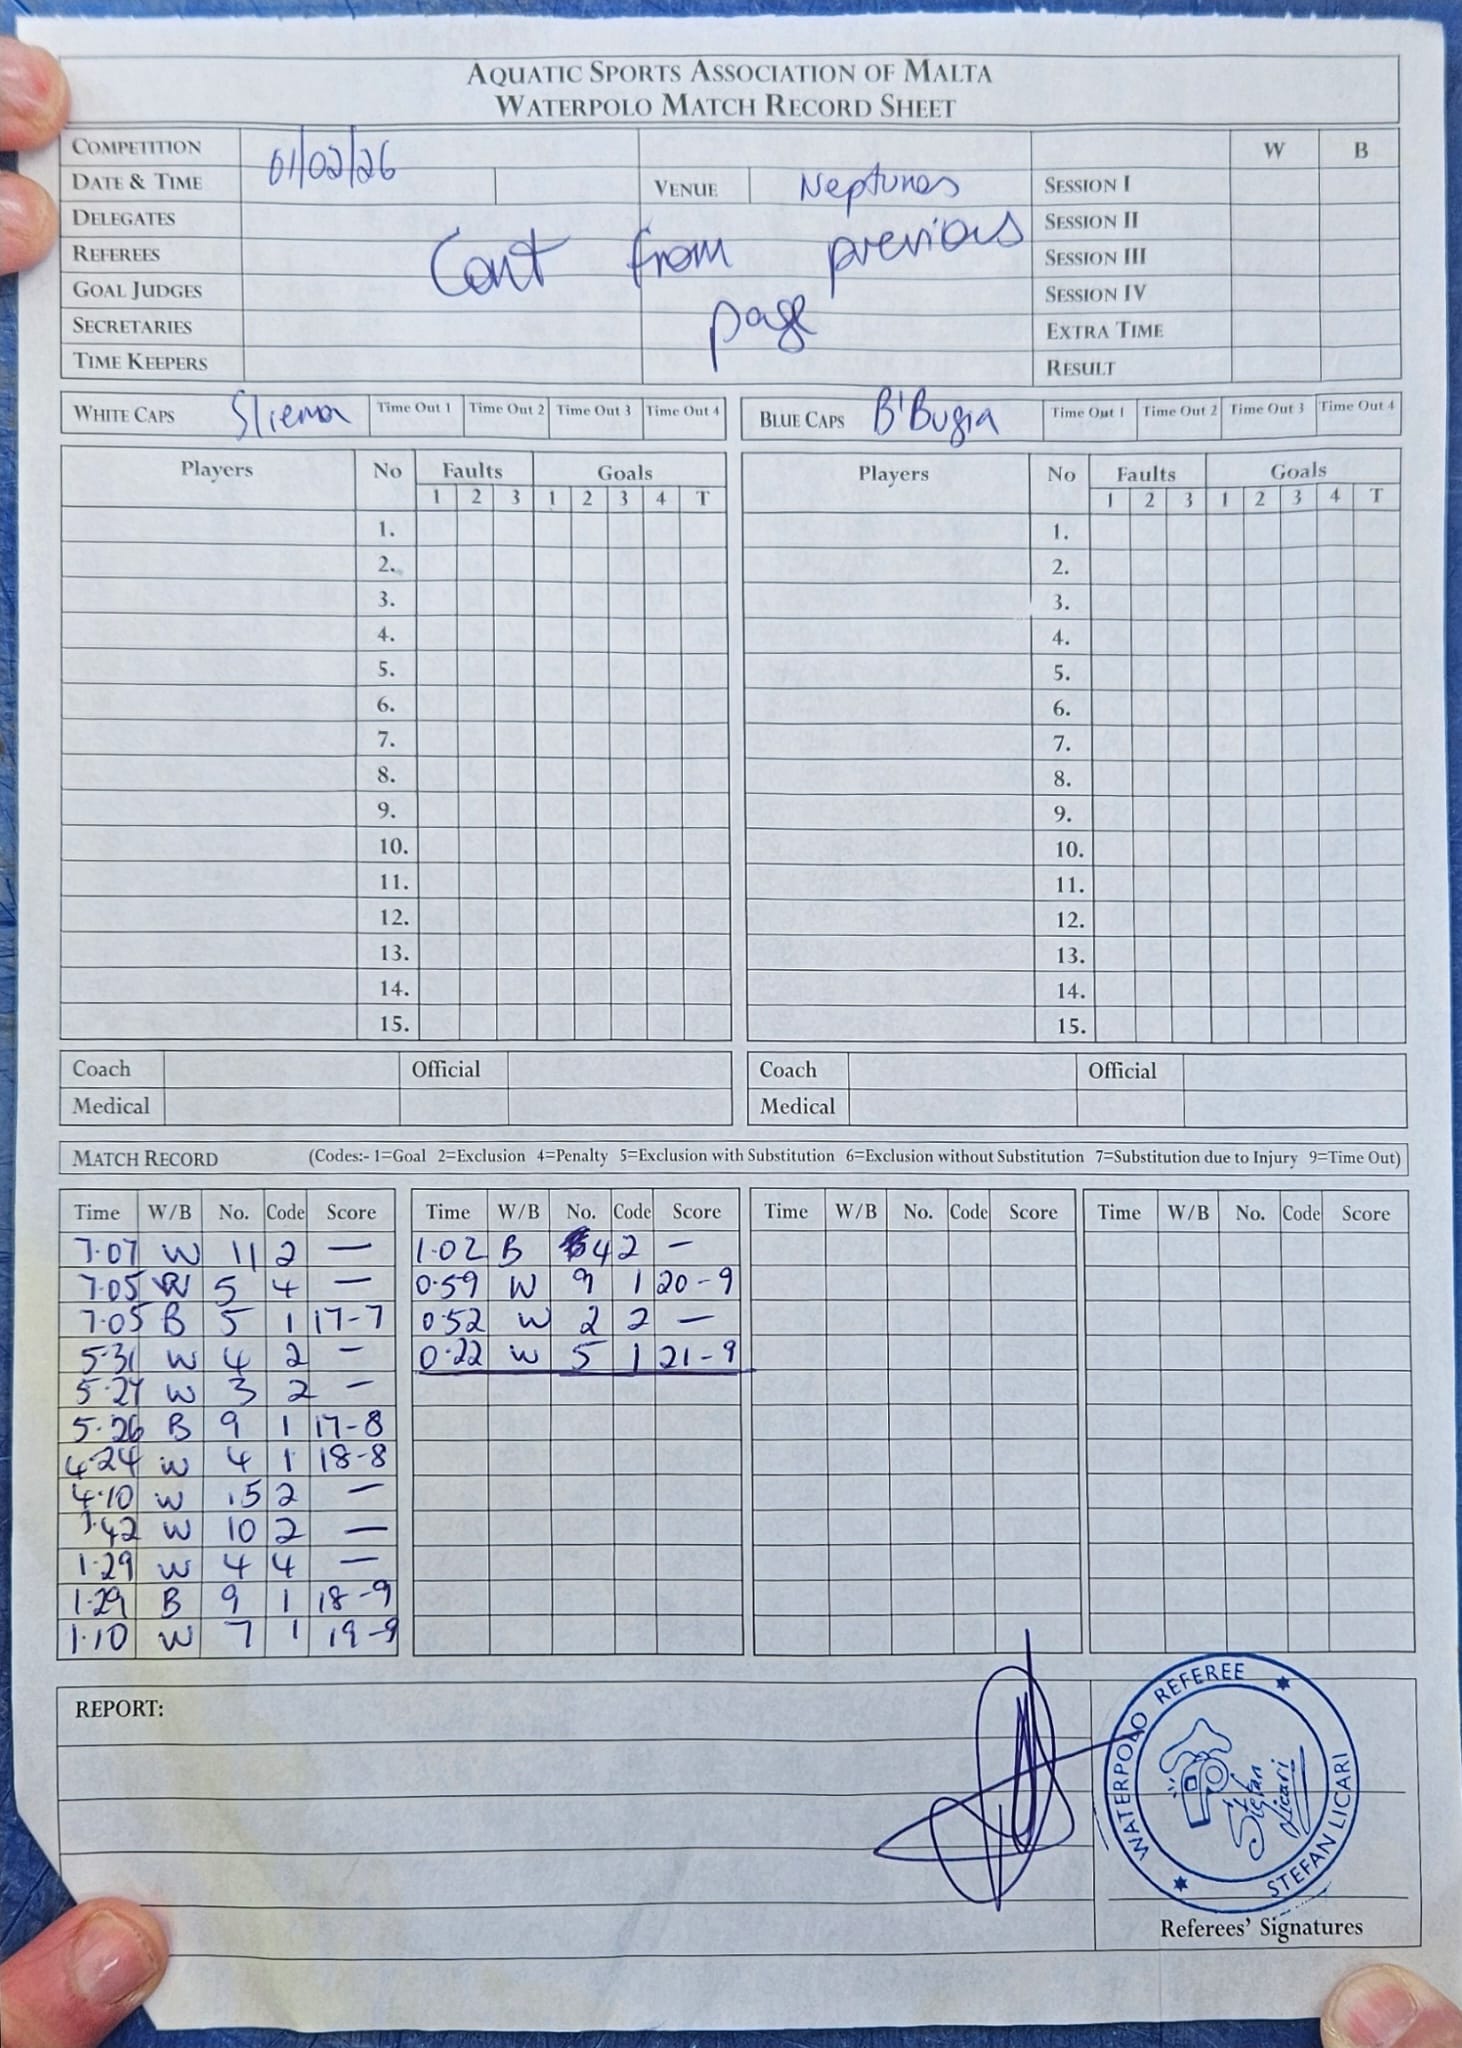 AQUATIC SPORTS ASSOCIATION OF MALTA
WATERPOLO MATCH RECORD SHEET
COMPETITION W B
DATE & TIME 01/02/26 VENUE Neptunes SESSION I
DELEGATES SESSION II
REFEREES Cont from previous SESSION III
GOAL JUDGES page SESSION IV
SECRETARIES EXTRA TIME
TIME KEEPERS RESULT
WHITE CAPS Sliema Time Out 1 Time Out 2 Time Out 3 Time Out 4 BLUE CAPS B'Bugia Time Out 1 Time Out 2 Time Out 3 Time Out 4
Players No Faults Goals Players No Faults Goals
1 2 3 1 2 3 4 T 1 2 3 1 2 3 4 T
1. 1.
2. 2.
3. 3.
4. 4.
5. 5.
6. 6.
7. 7.
8. 8.
9. 9.
10. 10.
11. 11.
12. 12.
13. 13.
14. 14.
15. 15.
Coach Official Coach Official
Medical Medical
MATCH RECORD (Codes:- 1=Goal 2=Exclusion 4=Penalty 5=Exclusion with Substitution 6=Exclusion without Substitution 7=Substitution due to Injury 9=Time Out)
Time W/B No. Code Score Time W/B No. Code Score Time W/B No. Code Score Time W/B No. Code Score
7.07 W 11 2 — 1.02 B 4 2 —
7.05 W 5 4 — 0.59 W 9 1 20-9
7.05 B 5 1 17-7 0.52 W 2 2 —
5.31 W 4 2 — 0.22 W 5 1 21-9
5.27 W 3 2 —
5.26 B 9 1 17-8
4.24 W 4 1 18-8
4.10 W 2 —
W 10 2 —
1.29 W 4 4 —
1.29 B 9 1 18-9
1.10 W 7 1 19-9
REPORT:
WATERPOLO REFEREE
Stefan
Licari
STEFAN LICARI
Referees' Signatures